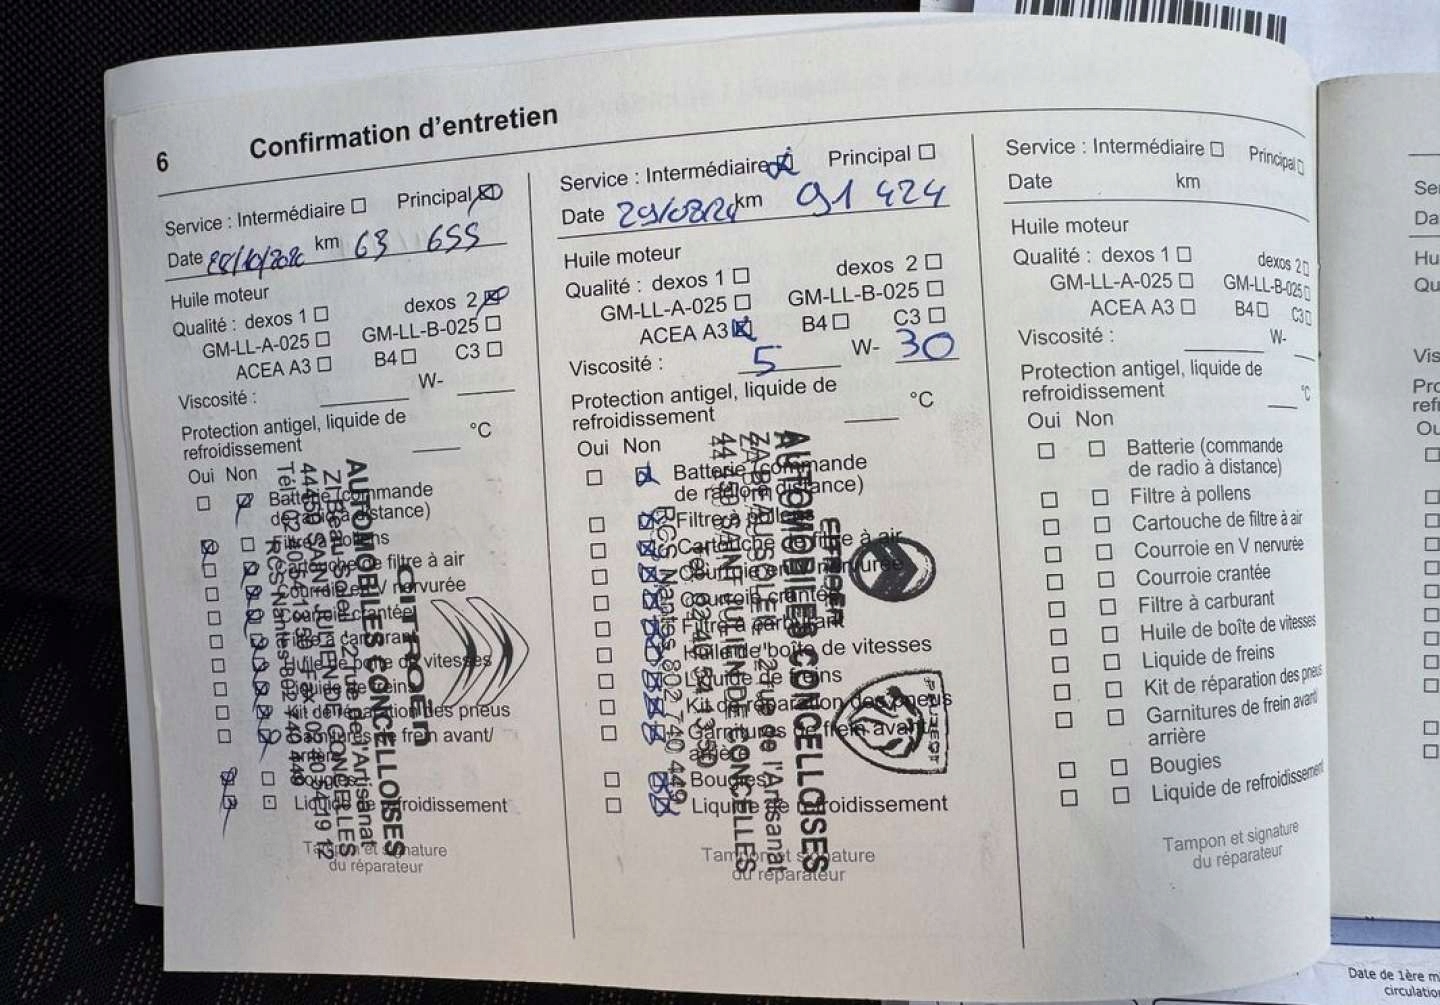 6 Confirmation d'entretien
Service : Intermédiaire Principal
Date 28/10/2020 km 63 655
Huile moteur
Qualité : dexos 1 dexos 2
GM-LL-A-025 GM-LL-B-025
ACEA A3 B4 C3
Viscosité : W-
Protection antigel, liquide de
refroidissement °C
Oui Non
Batterie (commande
de radio à distance)
Filtre à pollens
Cartouche de filtre à air
Courroie en V nervurée
Courroie crantée
Filtre à carburant
Huile de boîte de vitesses
Liquide de freins
Kit de réparation des pneus
Garnitures de frein avant/
arrière
Bougies
Liquide de refroidissement
Tampon et signature
du réparateur
CITROËN
AUTOMOBILES CONCELLOISES
ZI Beau Soleil 2 rue de l'Artisanat
44450 SAINT JULIEN DE CONCELLES
Tél. 02 40 54 13 50
RCS Nantes 802 740 449
Service : Intermédiaire Principal
Date 29/08/24 km 91 424
Huile moteur
Qualité : dexos 1 dexos 2
GM-LL-A-025 GM-LL-B-025
ACEA A3 B4 C3
Viscosité : 5 W- 30
Protection antigel, liquide de
refroidissement °C
Oui Non
Batterie (commande
de radio à distance)
Filtre à pollens
Cartouche de filtre à air
Courroie en V nervurée
Courroie crantée
Filtre à carburant
Huile de boîte de vitesses
Liquide de freins
Kit de réparation des pneus
Garnitures de frein avant/
arrière
Bougies
Liquide de refroidissement
Tampon et signature
du réparateur
AUTOMOBILES CONCELLOISES
ZA BEAUSOLEIL 2 rue de l'Artisanat
44450 SAINT JULIEN DE CONCELLES
Tél. 02 40 54 13 50
RCS Nantes 802 740 449
PEUGEOT
Service : Intermédiaire Principal
Date km
Huile moteur
Qualité : dexos 1 dexos 2
GM-LL-A-025 GM-LL-B-025
ACEA A3 B4 C3
Viscosité : W-
Protection antigel, liquide de
refroidissement °C
Oui Non
Batterie (commande
de radio à distance)
Filtre à pollens
Cartouche de filtre à air
Courroie en V nervurée
Courroie crantée
Filtre à carburant
Huile de boîte de vitesses
Liquide de freins
Kit de réparation des pneus
Garnitures de frein avant/
arrière
Bougies
Liquide de refroidissement
Tampon et signature
du réparateur
Ser
Da
Hu
Qu
Vis
Pro
refr
Ou
Date de 1ère m
circulatio